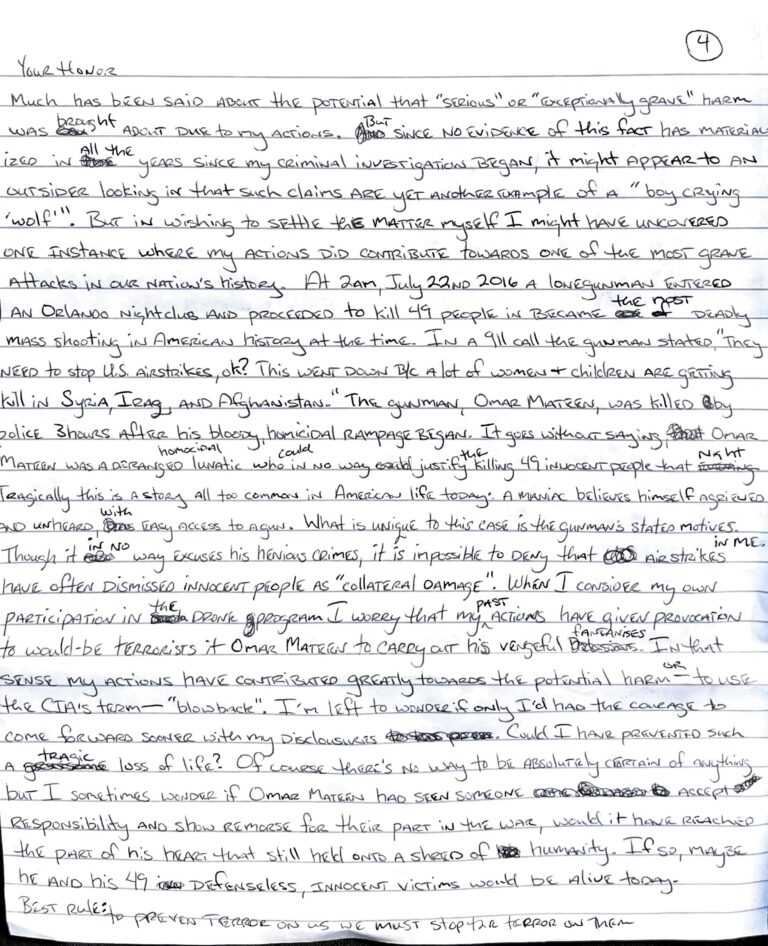 4
YOUR HONOR
MUCH HAS BEEN SAID ABOUT THE POTENTIAL THAT "SERIOUS" OR "EXCEPTIONALLY GRAVE" HARM
WAS brought ABOUT DUE TO my ACTIONS. BUT SINCE NO EVIDENCE OF THIS FACT HAS MATERIAL
IZED IN All the YEARS SINCE my CRIMINAL INVESTIGATION BEGAN, it might APPEAR TO AN
OUTSIDER LOOKING IN THAT SUCH CLAIMS ARE YET ANOTHER EXAMPLE OF A "boy CRYING
'WOLF'". BUT IN WISHING TO SETTLE THE MATTER MYSELF I might HAVE UNCOVERED
ONE INSTANCE WHERE my ACTIONS DID CONTRIBUTE TOWARDS ONE OF THE MOST GRAVE
ATTACKS IN OUR NATION'S HISTORY. At 2am, July 22ND 2016 A LONEGUNMAN ENTERED
AN ORLANDO NIGHTCLUB AND PROCEEDED TO KILL 49 PEOPLE IN BECAME the most DEADLY
MASS SHOOTING IN AMERICAN HISTORY AT THE TIME. IN A 911 CALL THE GUNMAN STATED, "THEY
NEED TO STOP U.S. AIRSTRIKES, OK? THIS WENT DOWN B/C A LOT OF WOMEN + CHILDREN ARE GETTING
KILL IN SYRIA, IRAQ, AND AFGHANISTAN." THE GUNMAN, OMAR MATEEN, WAS KILLED by
POLICE 3 HOURS AFTER HIS BLOODY, HOMICIDAL RAMPAGE BEGAN. IT GOES WITHOUT SAYING, OMAR
MATEEN WAS A DERANGED homocidal LUNATIC WHO could IN NO WAY justify the KILLING 49 INNOCENT PEOPLE THAT NIGHT
TRAGICALLY THIS IS A STORY ALL TOO COMMON IN AMERICAN LIFE TODAY: A MANIAC BELIEVES HIMSELF AGRIEVED
AND UNHEARD with EASY ACCESS TO A GUN. WHAT IS UNIQUE TO THIS CASE IS THE GUNMAN'S STATED MOTIVES.
THOUGH IT in NO WAY EXCUSES HIS HENIOUS CRIMES, it is IMPOSSIBLE TO DENY THAT AIRSTRIKES IN ME.
HAVE OFTEN DISMISSED INNOCENT PEOPLE AS "COLLATERAL DAMAGE". WHEN I CONSIDER MY OWN
PARTICIPATION IN the DRONE PROGRAM I WORRY THAT my PAST ACTIONS HAVE GIVEN PROVOCATION
TO WOULD-BE TERRORISTS it OMAR MATEEN TO CARRY OUT HIS VENGEFUL FANTANISES. IN THAT
SENSE MY ACTIONS HAVE CONTRIBUTED GREATLY TOWARDS THE POTENTIAL HARM – OR TO USE
THE CIA'S TERM – "BLOWBACK". I'M LEFT TO WONDER IF ONLY I'D HAD THE COURAGE TO
COME FORWARD SOONER WITH MY DISCLOSURES. COULD I HAVE PREVENTED SUCH
A TRAGIC LOSS OF LIFE? OF COURSE THERE'S NO WAY TO BE ABSOLUTELY CERTAIN OF ANYTHING
BUT I SOMETIMES WONDER IF OMAR MATEEN HAD SEEN SOMEONE ACCEPT
RESPONSIBILITY AND SHOW REMORSE FOR THEIR PART IN THE WAR, WOULD IT HAVE REACHED
THE PART OF HIS HEART THAT STILL HELD ONTO A SHRED OF HUMANITY. IF SO, MAYBE
HE AND HIS 49 DEFENSELESS, INNOCENT VICTIMS WOULD BE ALIVE TODAY.
BEST RULE: to PREVEN TERROR ON US WE MUST STOP TERROR ON THEM